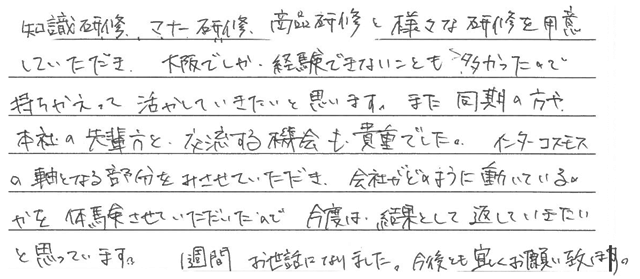 知識研修、マナー研修、商品研修と様々な研修を用意
していただき、大阪でしか経験できないことも多かったので
持ちかえって活かしていきたいと思います。また同期の方や
本社の先輩方と交流する機会も貴重でした。インターコスモス
の軸となる部分をみさせていただき、会社がどのように動いている
かを体験させていただいたので今度は結果として返していきたい
と思っています。1週間お世話になりました。今後とも宜しくお願い致します。